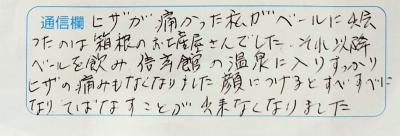 通信欄 ヒザが痛かった私がベールに出会
ったのは箱根のお土産屋さんでした。それ以降
ベールを飲み 館の温泉に入りすっかり
ヒザの痛みもなくなりました 顔につけるとすべすべに
なりてばなすことが出来なくなりました